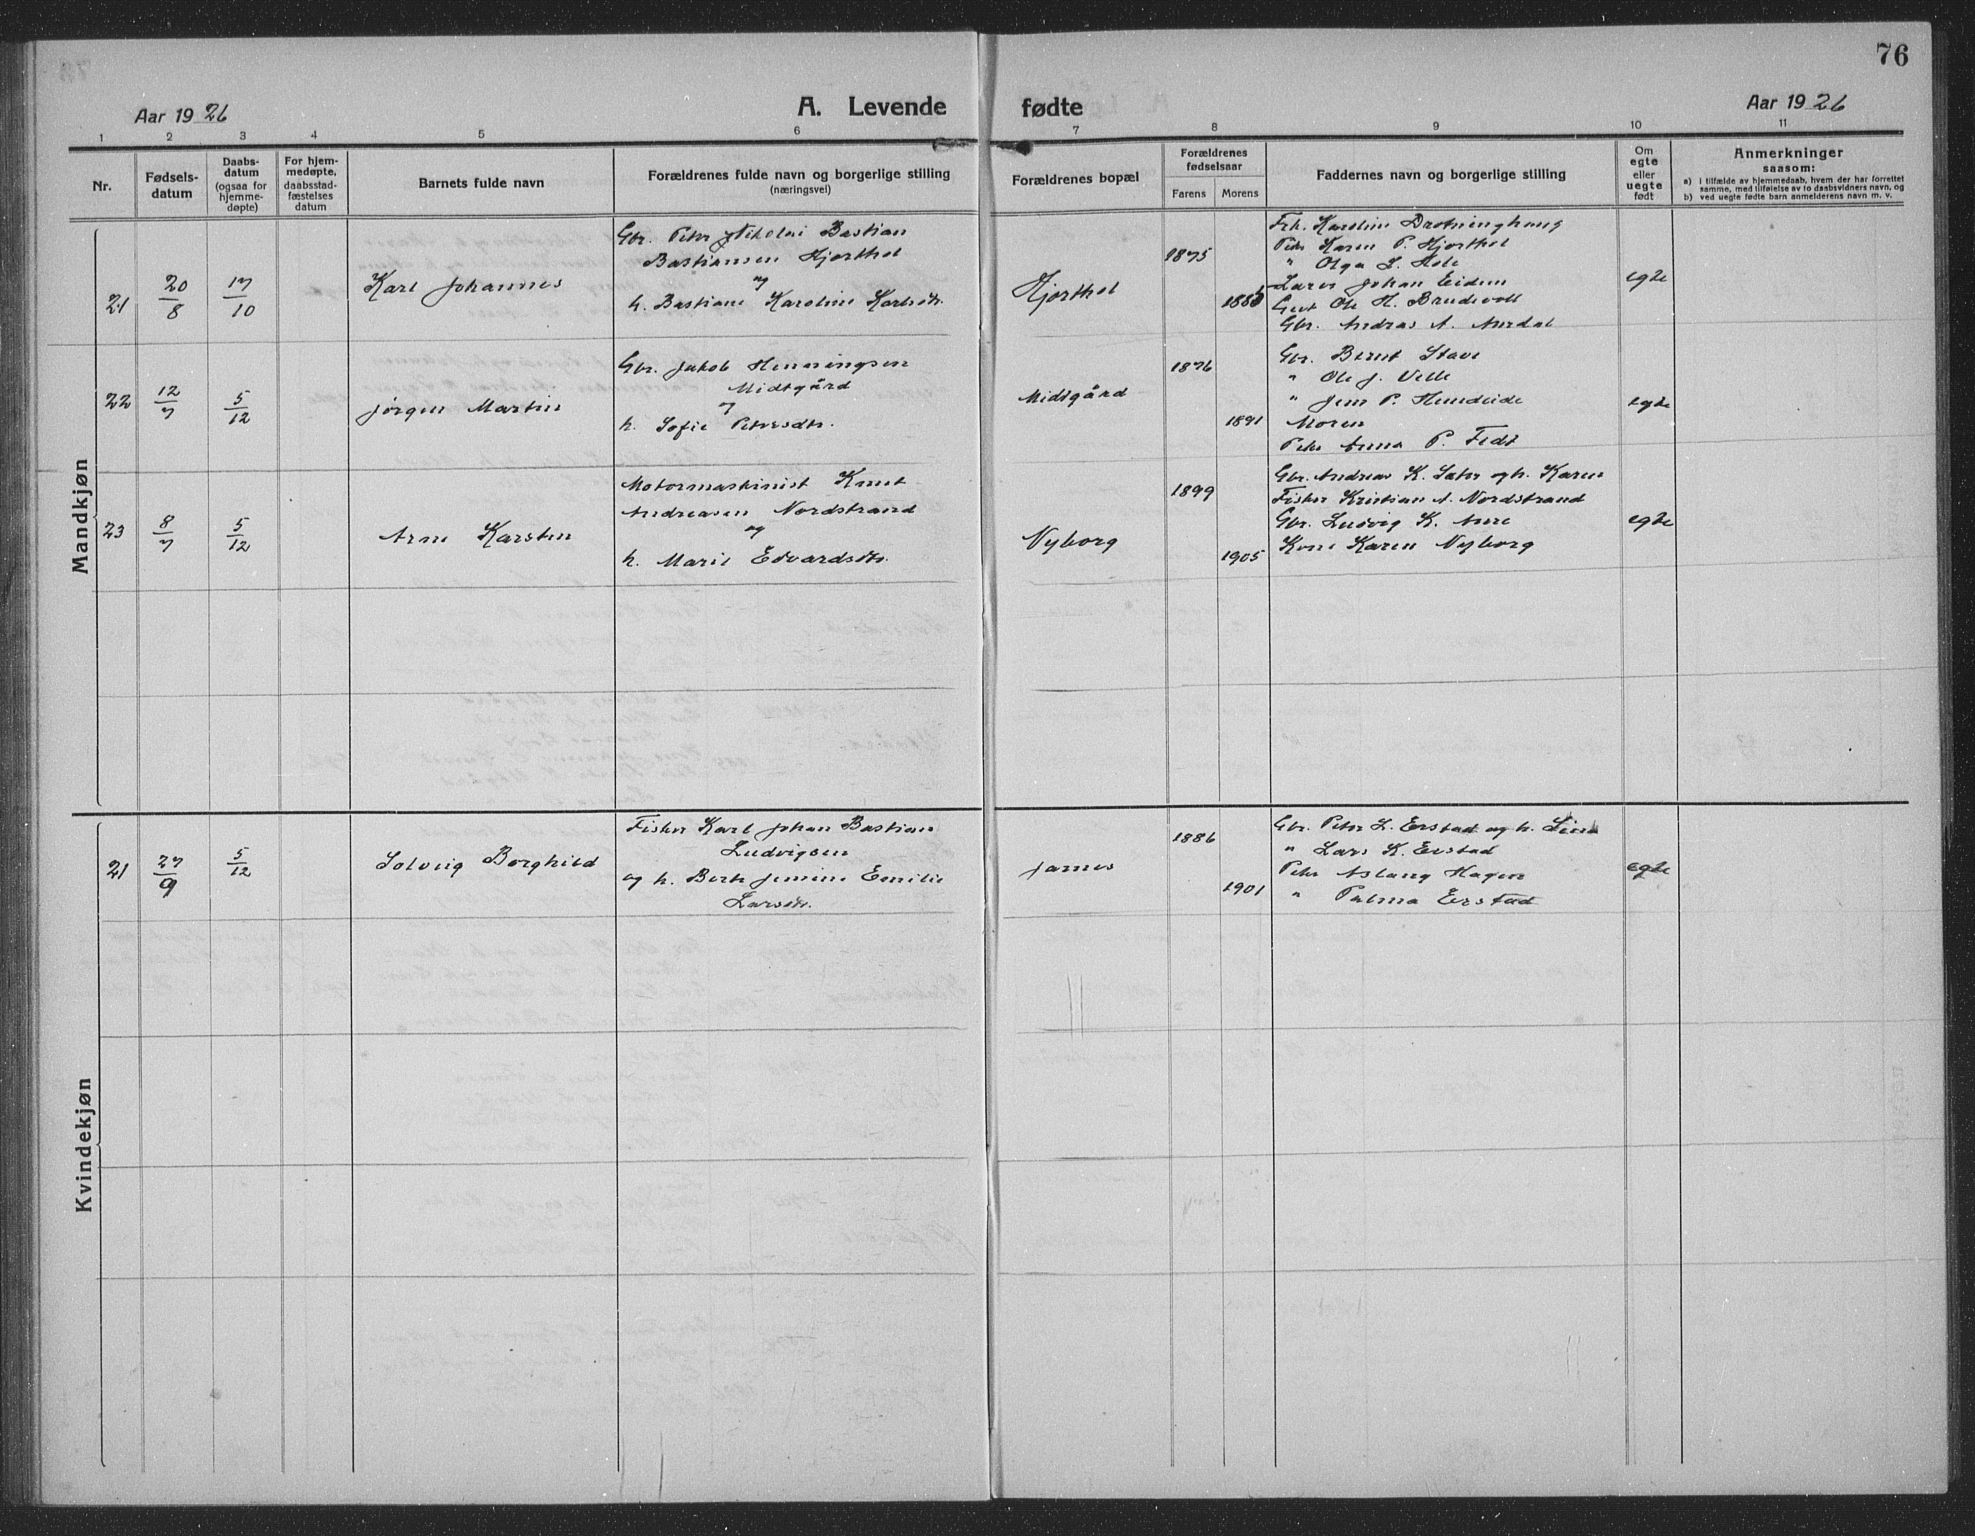 76
Aar 1926
A. Levende fødte
Aar 1926
1 2 3 4 5 6 7 8 9 10 11
Nr.
Fødsels-
datum
Daabs-
datum
(ogsaa for
hjemme-
døpte)
For hjem-
medøpte,
daabsstad-
fæstelses
datum
Barnets fulde navn
Forældrenes fulde navn og borgerlige stilling
(næringsvei)
Forældrenes bopæl
Forældrenes
fødselsaar
Farens Morens
Faddernes navn og borgerlige stilling
Om
egte
eller
uegte
født
Anmerkninger
saasom:
a) i tilfælde av hjemmedaab, hvem der har forrettet
samme, med tilføielse av to daabsvidners navn, og
b) ved uegte fødte barn anmelderens navn m. v.
Mandkjøn
21
20/8
17/10
Karl Johannes
Gbr. Peter Nikolai Bastian
Bastiansen Hjorthol
og
h. Bastiane Karoline Karlsdtr.
Hjorthol
1875
Frk. Karoline Drotninghaug
Pike Karen P. Hjorthol
" Olga L. Hole
Johan Eidem
Ole H. Brudevoll
Gbr. Andras A. Aurdal
egte
22
12/7
5/12
Jørgen Martin
Gbr. Jakob Henningsen
Midtgård
og
h. Sofie Petersdtr.
Midtgård
1876
1891
Gbr. Bernt Stave
" Ole J. Velle
" Jens P. Hundeide
Moren
Pike Anna P. Fedt
egte
23
8/7
5/12
Arne Karsten
Motormaskinist Knut
Andreasen Nordstrand
og
h. Marie Edvardsdtr.
Nyborg
1899
1905
Gbr. Andreas K. Sæter og h. Karen
Fisker Kristian A. Nordstrand
Gbr. Ludvig K. Aure
Kone Karen Nyborg
egte
Kvindekjøn
21
27/9
5/12
Solveig Borghild
Fisker Karl Johan Bastian
Ludvigsen
og h. Jemine Emilie
Larsdtr.
Jarnes
1886
1901
Gbr. Peter L. Erstad og h.
" Lars K. Erstad
Pike Aslaug Hagen
" Palma Erstad
egte